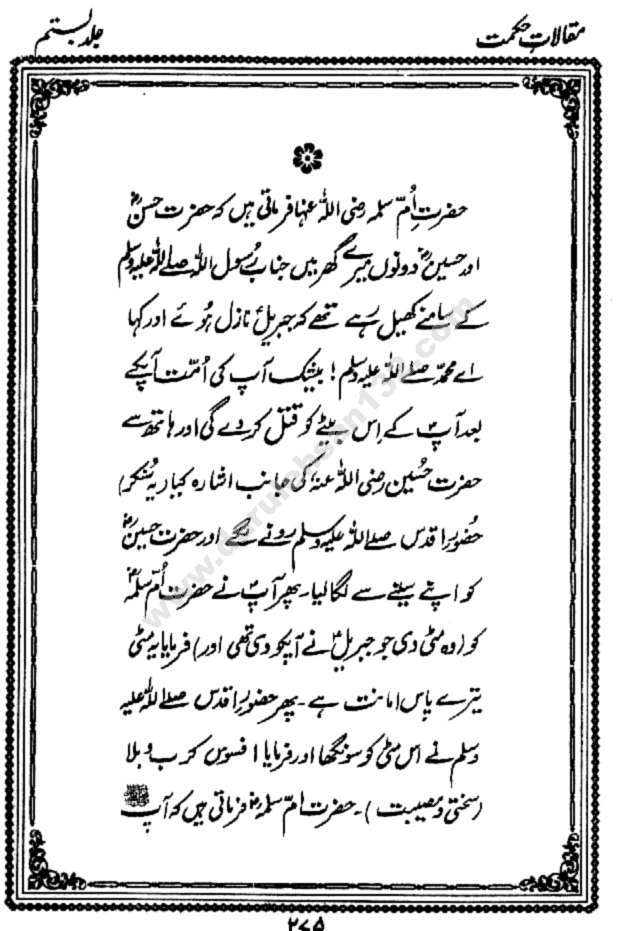 مقالاتِ حکمت
جلد بستم
حضرت اُمّ سلمہ رضی اللہ عنہا فرماتی ہیں کہ حضرت حسنؓ
اور حسینؓ دونوں میرے گھر میں جناب رُسول اللہ صلے اللہ علیہ وسلم
کے سامنے کھیل رہے تھے کہ جبریلؑ نازل ہُوئے اور کہا
اے محمدؐ صلے اللہ علیہ وسلم! بیشک آپ کی اُمّت آپکے
بعد آپؐ کے اِس بیٹے کو قتل کر دے گی اور ہاتھ سے
حضرت حُسین رضی اللہ عنہٗ کی جانب اشارہ کیا۔ (یہ سُنکر)
حُضورِ اقدس صلے اللہ علیہ وسلم رونے لگے اور حضرت حسینؓ
کو اپنے سینے سے لگا لیا۔ پھر آپؐ نے حضرت اُمّ سلمہؓ
کو (وہ مٹی دی جو جبریلؑ نے آپکو دی تھی اور) فرمایا یہ مٹی
تیرے پاس امانت ہے۔ پھر حضورِ اقدس صلے اللہ علیہ
وسلم نے اس مٹی کو سونگھا اور فرمایا افسوس کرب و بلا
(سختی و مصیبت)۔ حضرت اُمّ سلمہؓ فرماتی ہیں کہ آپ ﷺ
۲۷۵